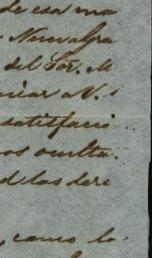 de esa ma
Nueva Gra
del Sor. M
nciar a V. s
satisfacci
os oculta.
d las dere
, como lo